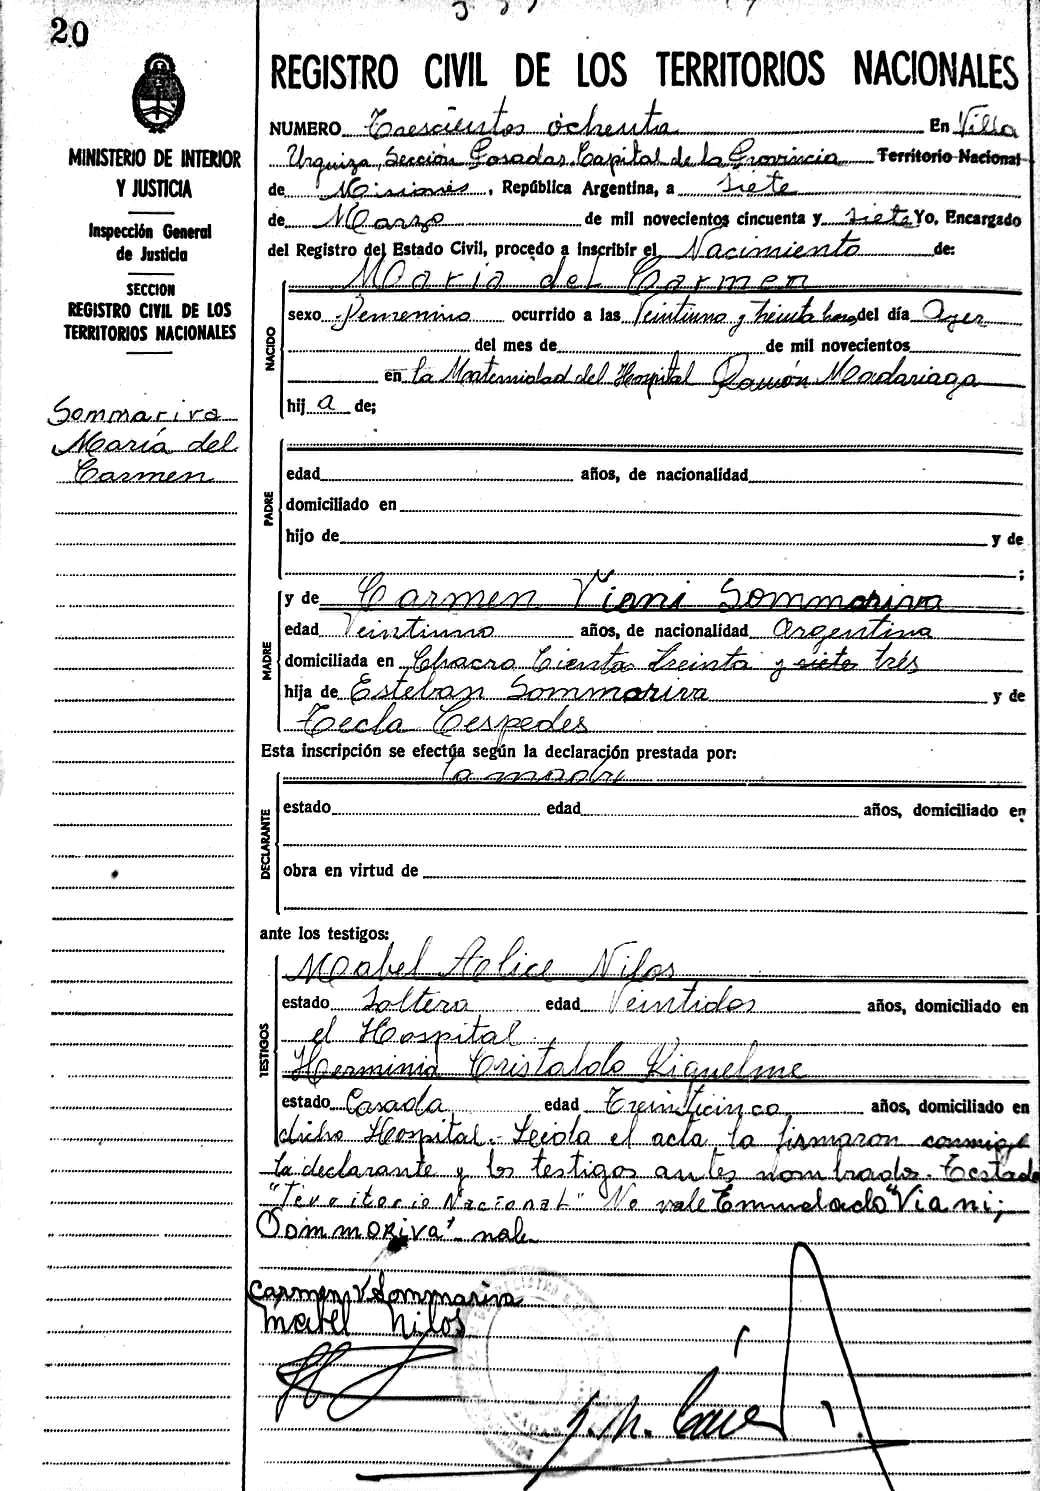 20
MINISTERIO DE INTERIOR
Y JUSTICIA
Inspección General
de Justicia
SECCION
REGISTRO CIVIL DE LOS
TERRITORIOS NACIONALES
Sommariva
María del
Carmen
REGISTRO CIVIL DE LOS TERRITORIOS NACIONALES
NUMERO Trescientos ochenta En Villa
Urquiza, Sección Posadas, Capital de la Provincia Territorio Nacional
de Misiones, República Argentina, a siete
de Marzo de mil novecientos cincuenta y siete Yo, Encargado
del Registro del Estado Civil, procedo a inscribir el Nacimiento de:
NACIDO
María del Carmen
sexo Femenino ocurrido a las Veintiuna y treinta horas, del día Ayer
del mes de de mil novecientos
en la Maternidad del Hospital Ramón Madariaga
hij a de;
PADRE
edad años, de nacionalidad
domiciliado en
hijo de y de
;
MADRE
y de Carmen Viani Sommariva
edad Veintiuno años, de nacionalidad Argentina
domiciliada en Chacra Ciento treinta y siete trés
hija de Esteban Sommariva y de
Tecla Cespedes
Esta inscripción se efectúa según la declaración prestada por:
DECLARANTE
la madre
estado edad años, domiciliado en
obra en virtud de
ante los testigos:
TESTIGOS
Mabel Alice Nilos
estado Soltera edad Veintidos años, domiciliado en
el Hospital
Herminia Cristaldo Riquelme
estado Casada edad Treinticinco años, domiciliado en
dicho Hospital. Leida el acta la firmaron conmigo
la declarante y los testigos antes nombrados. Testado
"Territorio Nacional" No vale Enmendado "Viani;
Sommariva" vale
Carmen V Sommariva
Mabel Nilos